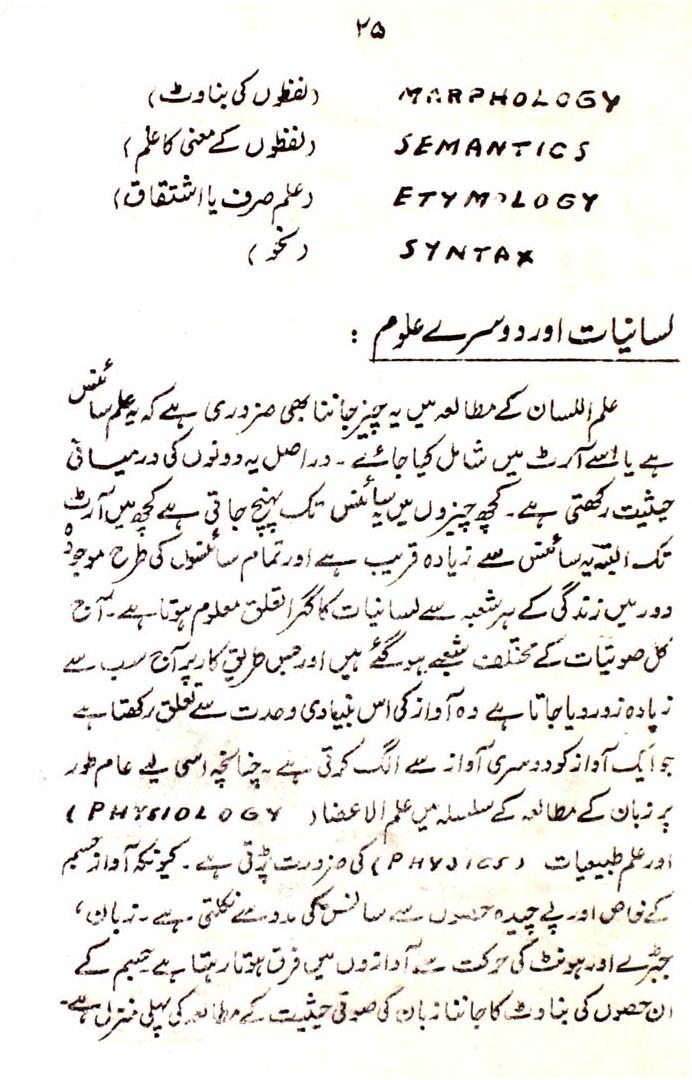 ۲۵
MARPHOLOGY (لفظوں کی بناوٹ)
SEMANTICS (لفظوں کے معنی کا علم)
ETYMOLOGY (علم صرف یا اشتقاق)
SYNTAX (نحو)
لسانیات اور دوسرے علوم :
علم اللسان کے مطالعہ میں یہ چیز جاننا بھی ضروری ہے کہ یہ علم سائنس
ہے یا اسے آرٹ میں شامل کیا جائے ۔ در اصل یہ دونوں کی درمیانی
حیثیت رکھتی ہے ۔ کچھ چیزوں میں یہ سائنس تک پہنچ جاتی ہے کچھ میں آرٹ
تک البتہ یہ سائنس سے زیادہ قریب ہے اور تمام سائنسوں کی طرح موجودہ
دور میں زندگی کے ہر شعبہ سے لسانیات کا گہرا تعلق معلوم ہوتا ہے ۔ آج
کل صوتیات کے مختلف شعبے ہو گئے ہیں اور جس طریق کار پر آج سب سے
زیادہ زور دیا جاتا ہے وہ آواز کی اس بنیادی وحدت سے تعلق رکھتا ہے
جو ایک آواز کو دوسری آواز سے الگ کرتی ہے ۔ چنانچہ اسی لیے عام طور
پر زبان کے مطالعہ کے سلسلہ میں علم الاعضا (PHYSIOLOGY)
اور علم طبیعیات (PHYSICS) کی ضرورت پڑتی ہے ۔ کیونکہ آواز جسم
کے خاص اور پے چیدہ حصوں سے سانس کی مدد سے نکلتی ہے ۔ زبان ،
جبڑے اور ہونٹ کی حرکت سے آوازوں میں فرق ہوتا رہتا ہے جسم کے
ان حصوں کی بناوٹ کا جاننا زبان کی صوتی حیثیت کے مطالعہ کی پہلی منزل ہے ۔